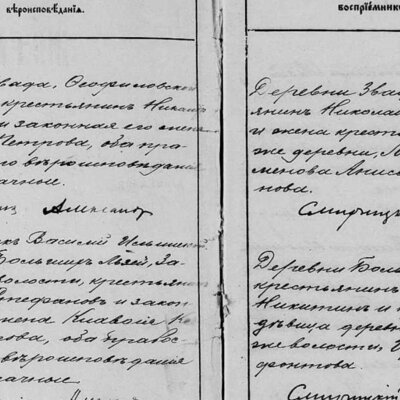 вѣроисповѣданія.
вада, Ѳеофиловской
крестьянинъ Николай
и законная его жена
Петрова, оба пра-
вѣроисповѣданія
ачные.
Александ
Василій
Большихъ За-
волости, крестьянин
Стефановъ и закон
жена Клавдія
лова, оба правос-
вѣроисповѣданія
ачные
воспріемнико
Деревни Звад
янинъ Николай
и жена кресть
же деревни,
менова Анис
нова.
Смирицк
Деревни Боль
крестьянинъ
Никитинъ и
дѣвица дерев
же волости,
фонтова.
Смирицкій